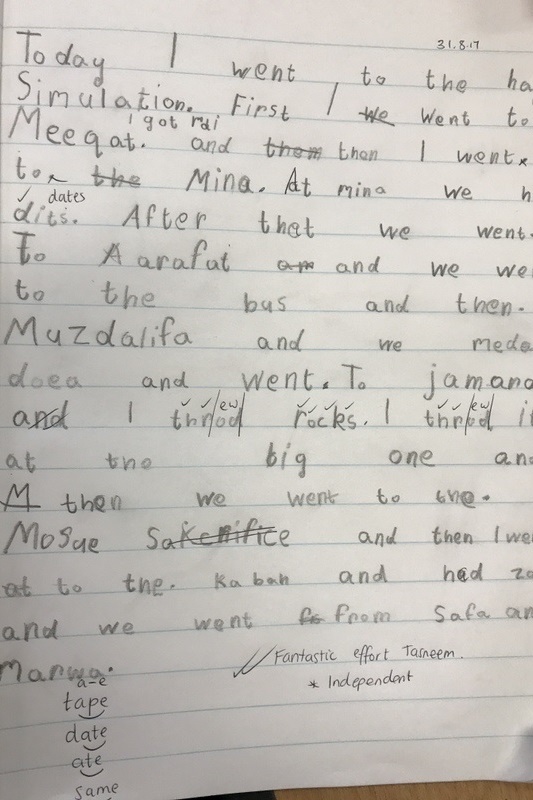 31.8.17
Today I went to the ha
Simulation. First I we went to
i got rdi
Meeqat. and them then I went
to the Mina. At mina we h
dates
dits. After that we went.
To Aarafat am and we we
to the bus and then.
Muzdalifa and we meda
doea and went. To jamand
ew ew
and I throd rocks. I throd i
at the big one and
M then we went to the.
Mosqe Sakerifice and then I we
at to the. Kabah and had za
and we went fr from Safa an
Marwa.
✓ Fantastic effort Tasneem.
* Independent
a-e
tape
date
ate
same